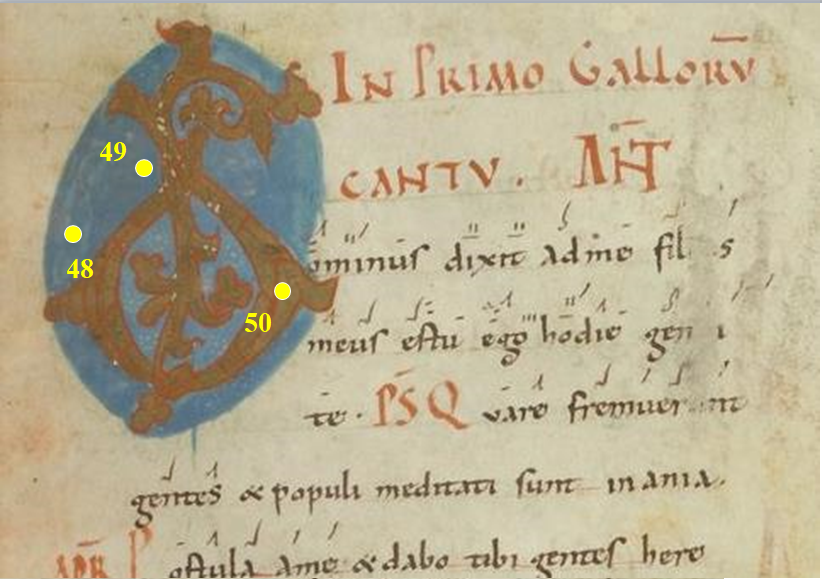 In Primo Gallorū
49
cantu. Añt
48
Dominus dixit ad me fil s
50
meus es tu ego hodie gen i
te. P̄S Quare fremuer nt
gentes & populi meditati sunt inania.
ostula a me & dabo tibi gentes here